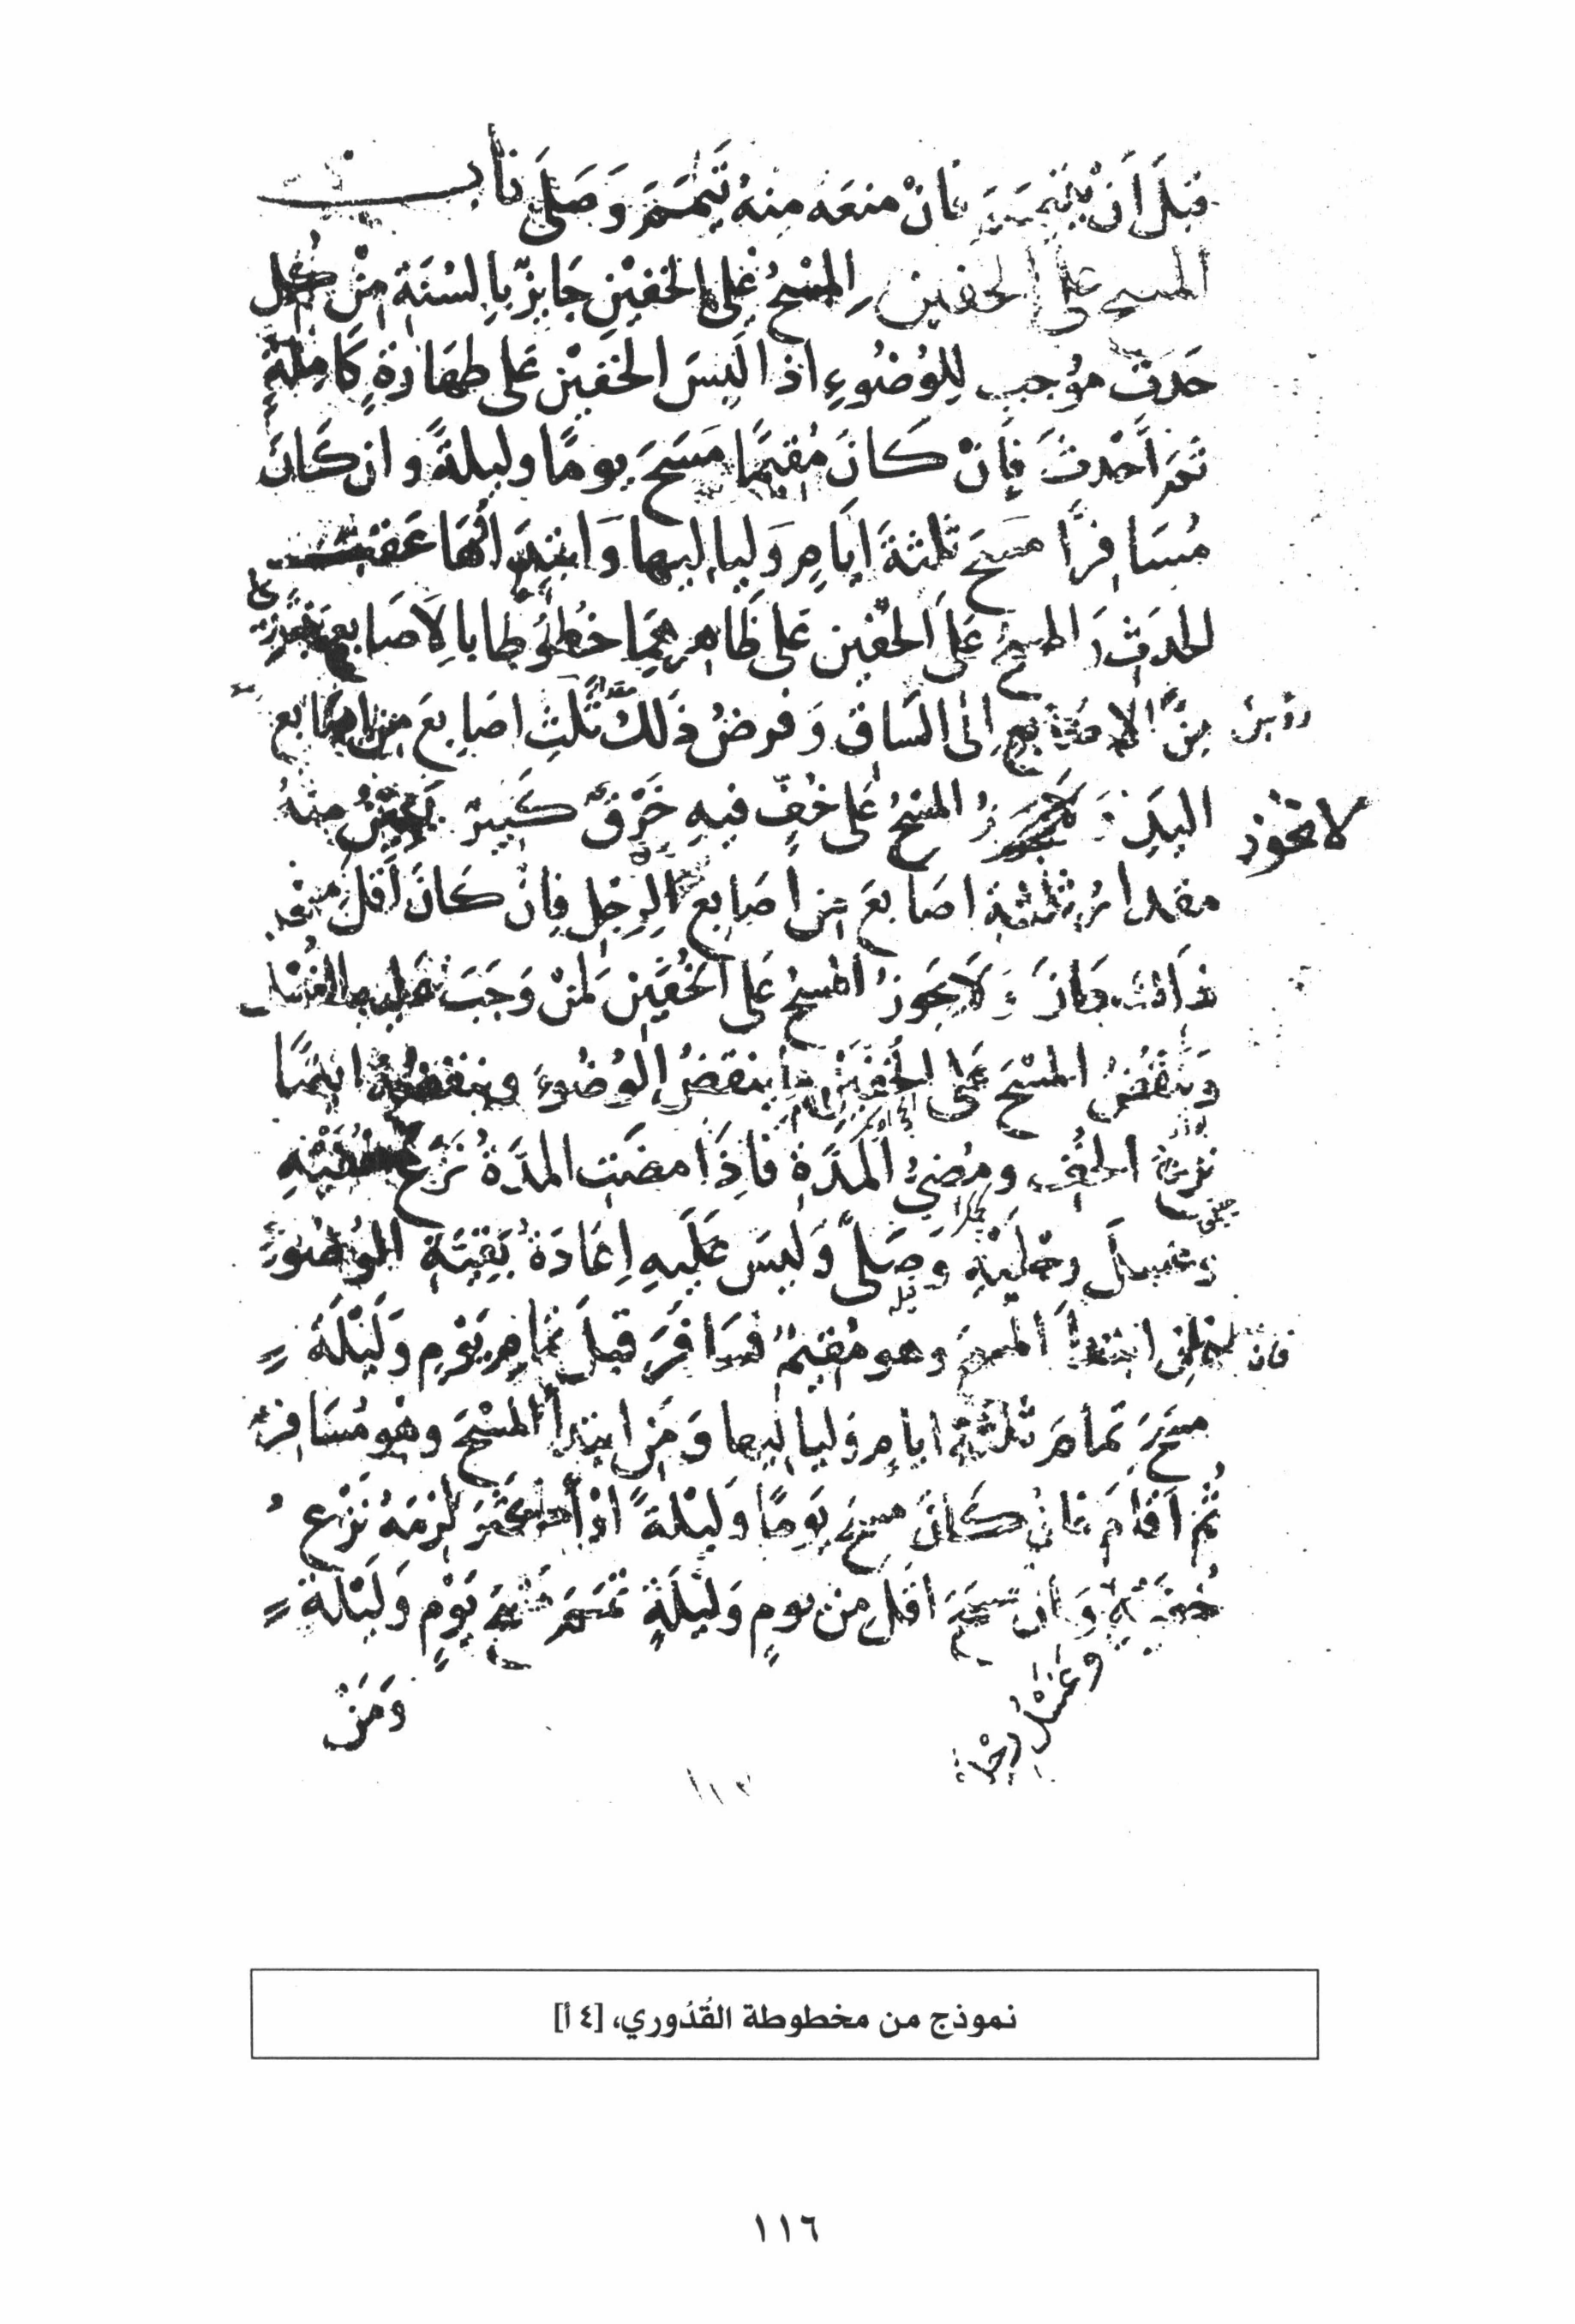 قبلَ أن يتيممَ فانْ منعَه مِنهُ تَيَمَّمَ وَصَلَّى باب
المسح على الخفين المَسْحُ عَلى الخفيْنِ جَايزٌ بِالسُنَةِ مِنْ كُل
حَدَثٍ مُوجبٍ لِلوُضُوءِ اذا لَبِسَ الخفَيْنِ عَلى طهَارَةٍ كَامِلَةٍ
ثمَ اَحْدثَ فَانْ كَانَ مُقِيمًا مَسَحَ يومًا وليلةً وان كَانَ
مُسَافِرًا مسَحَ ثلثةَ اَيَامٍ وَلياليها وَابتِدَاؤهَا عَقيبَ
الحدَثِ وَالمسحُ عَلَى الخُفيْنِ عَلى ظَاهِرِهِمَا خطُوطًا بالاَصَابِعِ
مِنَ الاصَابعِ اِلى السَاقِ وَفرضُ ذَلكَ ثلَثُ اصَابعَ مِن اصَابع
اليَدِ وَ المَسْحُ عَلى خُفٍّ فيهِ خَرْقٌ كَبيرٌ مِنهُ
لا يجُوز
مقدارُ ثلثةِ اصَابعَ مِن اَصَابعِ الرِجْلِ فانْ كَانَ اَقلَ مِن
ذَالكَ جَازَ وَلَايَجوزُ المسْحُ عَلى الخُفَيْنِ لمَنْ وَجَبَ عَليهِ الغُسْلُ
وَيَنْقُضُ المَسْحَ عَلى الخُفَيْنِ مَا ينقضُ الوُضُوءَ وينقضُهُ ايْضًا
نَزعُ الخُفِ ومُضِيُ المُدَّةِ فَاذَا مضَتِ المدَةُ نَزَعَ خُفَيْهِ
وغسلَ رِجْليْهِ وَصَلى وَليسَ عَلَيهِ اِعَادَةُ بَقِيَةِ الوُضُوءِ
ابتدأ المسحَ وهو مُقيمٌ فسَافَرَ قبلَ تمامِ يَومٍ وَلَيْلَةٍ
فان
مسَحَ تمامَ ثلثةِ ايامٍ وَلياليها وَمَنِ ابتدأ المَسْحَ وهْو مُسَافِرٌ
ثُمَ اَقامَ فانْ كَانَ مسحَ يَومًا وَليْلةً اوْ أكثَرَ لزِمَهُ نَزْعُ
خُفَيْهِ وَانْ مَسَحَ اقلَ مِن يومٍ وَليْلَةٍ تمَمَ مسحَ يَوْمٍ وَلَيْلةٍ
وَغَسْلُ رِجْليه
وَمَنْ
نموذج من مخطوطة القُدُوري، [٤ أ]
١١٦